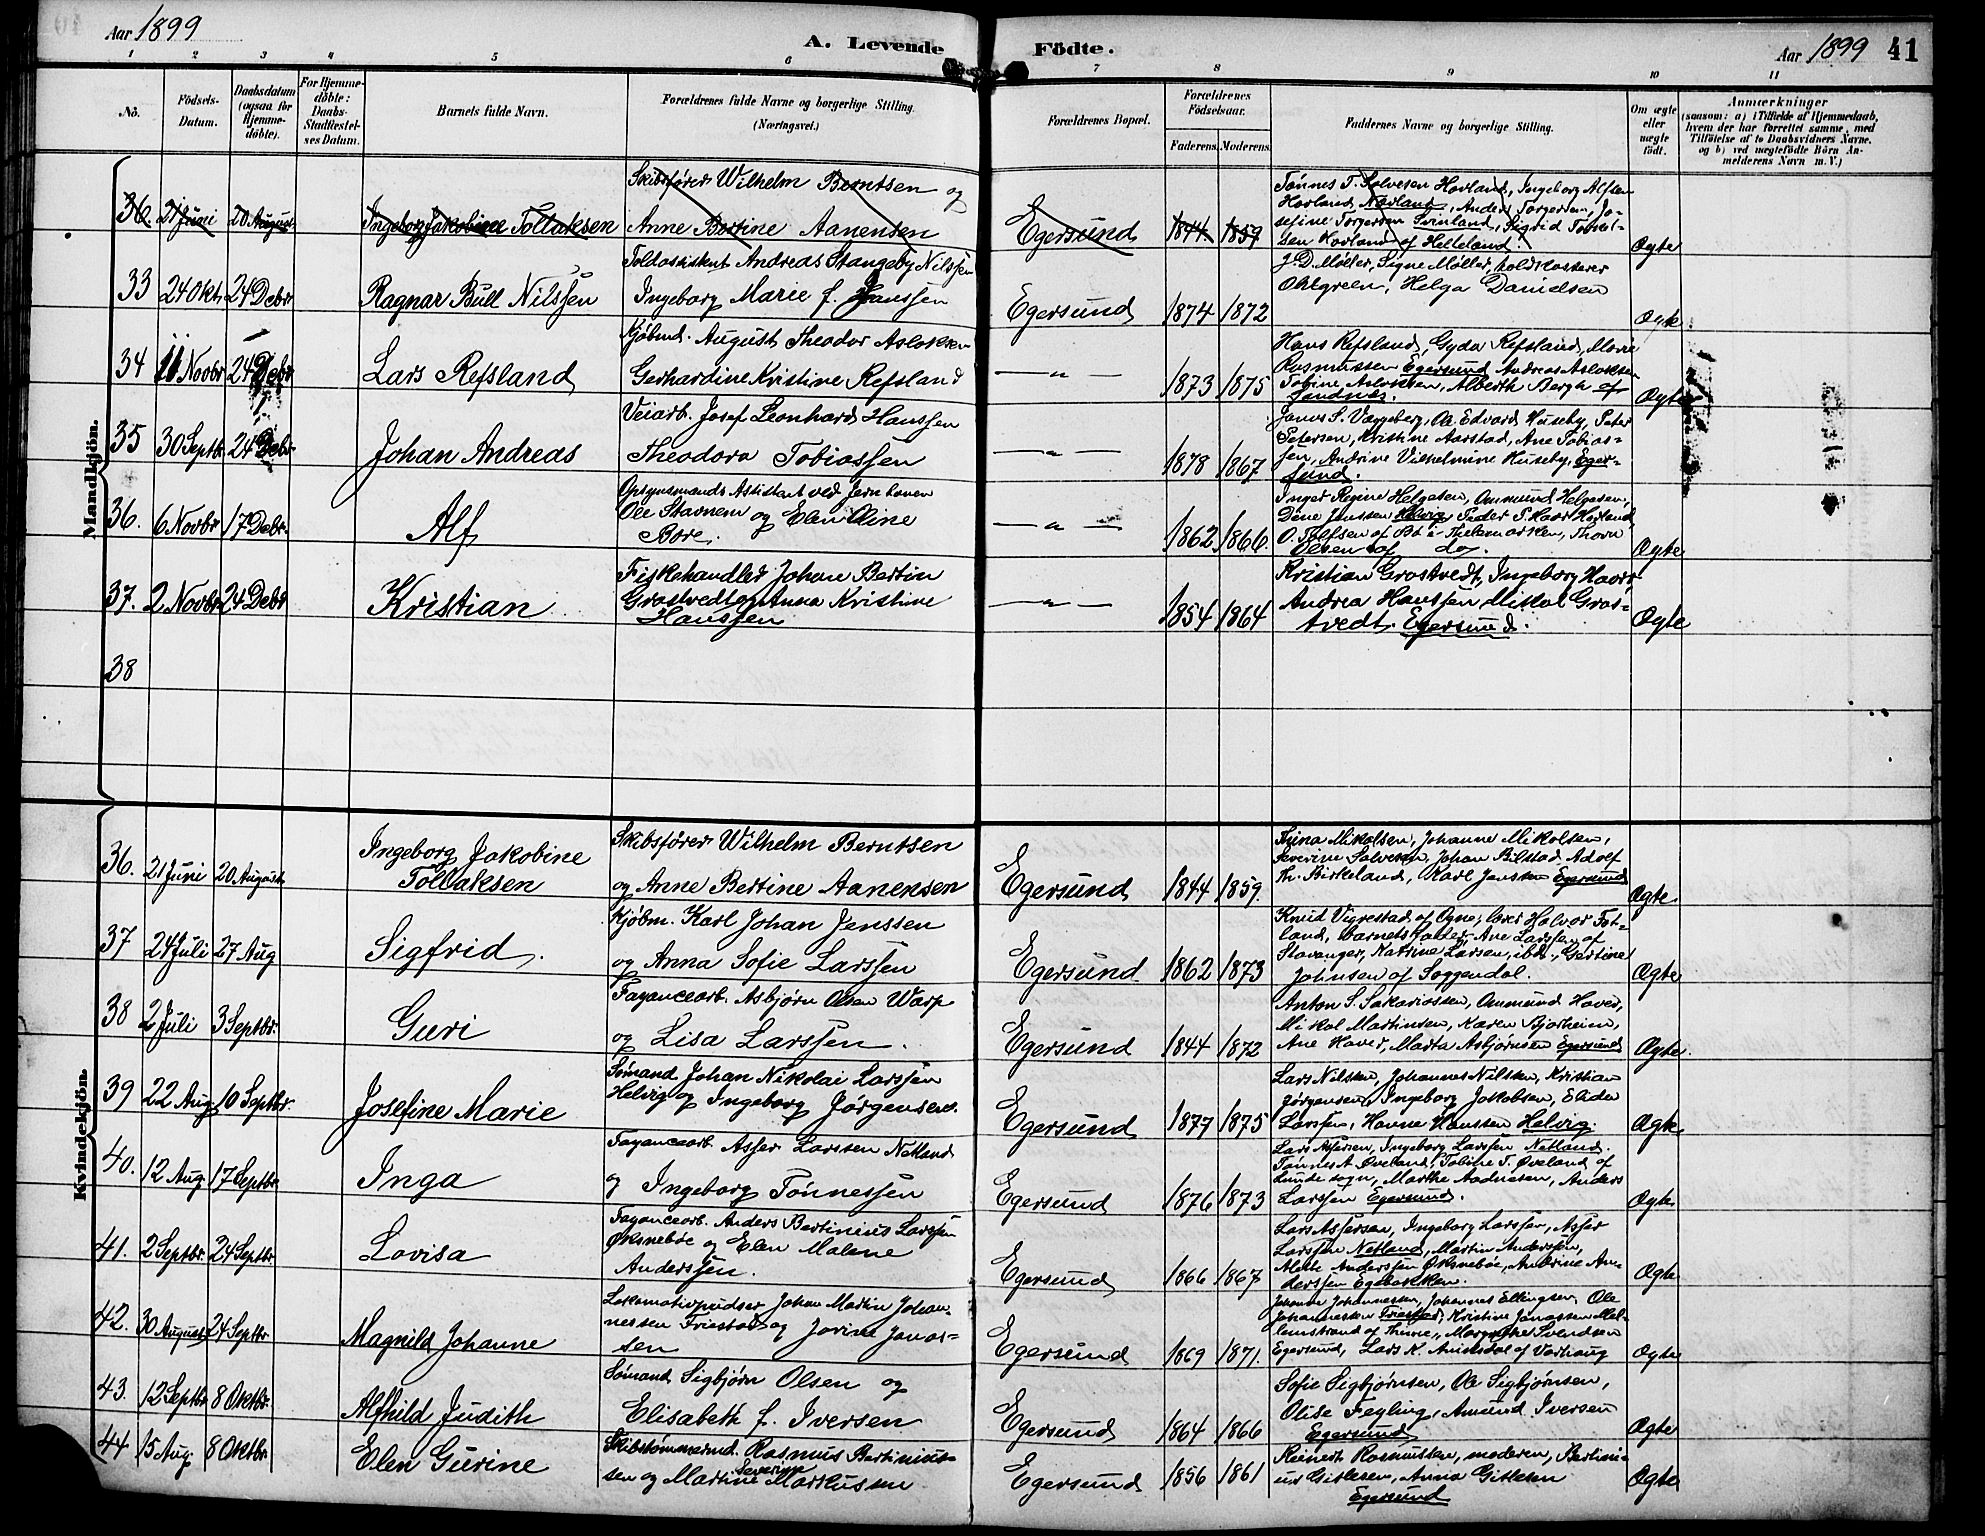 Aar 1899
A. Levende Födte.
Aar 1899 41
1 2 3 4 5 6 7 8 9 10 11
No.
Födsels-Datum.
Daabsdatum (ogsaa for Hjemmedöbte).
For Hjemmedöbte: Daabs-Stadfæstelses Datum.
Barnets fulde Navn.
Forældrenes fulde Navne og borgerlige Stilling. (Næringsvei.)
Forældrenes Bopæl.
Forældrenes Födselsaar.
Faderens. Moderens.
Faddernes Navne og borgerlige Stilling.
Om ægte eller uægte födt.
Anmærkninger
(saasom: a) i Tilfælde af Hjemmedaab, hvem der har forrettet samme, med Tilföielse af to Daabsvidners Navne. og b) ved uægtefödte Börn Anmelderens Navn m. V.)
Mandkjön.
36. 21 Juni 20 August Ingeborg Jakobine Tollaksen
Skibsfører Wilhelm Berntsen og
Anne Bertine Aanensen
Egersund 1844 1859
Tønnes T. Solvesen Hovland, Ingeborg Alfsen
Hovland, Anders Torgersen, Josefine
Torgersen Svinland, Sigrid
Hovland af Helleland
Ægte
33 24 Okt. 24 Debr Ragnar Bull Nilssen
Toldassistent Andreas Stangeby Nilssen
Ingeborg Marie f. Hanssen
Egersund 1874 1872
J. D. Møller, Signe Møller, toldkasserer
Ohlgreen, Helga Danielsen
Ægte
34 11 Novbr 24 Debr Lars Refsland
Kjøbmd. August Theodor Aslaksen
Gerhardine Kristine Refsland
— " — 1873 1875
Hans Refsland, Gyda Refsland, Marie
Rasmussen Egersund Andreas Aslaksen
Tobine Aslaksen, Alberth Bergh af
Sandnæs.
Ægte
35 30 Septb. 24 Debr Johan Andreas
Veiarb. Josef Leonhard Hanssen
Theodora Tobiassen
— " — 1878 1867
Jonas S. Væggeberg, Ole Edvard Huseby, Peter
Petersen, Kristine Aarstad, Ane Tobiassen,
Andrine Vilhelmine Huseby, Egersund.
36. 6 Novbr 17 Debr. Alf
Opsynsmands Assistent ved Jernbanen
Ole Stavnem og Elen Oline
Bore.
— " — 1862 1866.
Inger Regine Helgesen, Ommund Helgesen,
Dine Janssen Helvig Peder P. Haar Hovland
O. Tolfsen af Bø i Thelemarken, Thora
Olsen af do.
Ægte
37. 2 Novbr 24 Debr Kristian
Fiskehandler Johan Bertin
Grastvedt og Anna Kristine
Hanssen
— " — 1854 1864
Kristian Grastvedt, Ingeborg Haar
Andrea Hanssen Mikal Grastvedt.
Egersund.
Ægte
38
Kvindekjön.
36. 21 Juni 20 August Ingeborg Jakobine
Tollaksen
Skibsfører Wilhelm Berntsen
og Anne Bertine Aanensen
Egersund 1844 1859.
Trina Mikalsen, Johanne Mikalsen,
Severine Salvesen, Johan Bilstad Adolf
Th. Birkeland, Karl Jenssen Egersund
Ægte.
37 24 Juli 27 Aug Sigfrid.
Kjøbm. Karl Johan Jenssen
og Anna Sofie Larssen
Egersund 1862 1873
Knud Vigrestad af Ogne, lærer Halvor Fotland,
barnets fader, Ane Larssen af
Stavanger, Katrine Larsen, ibd., Gertine
Johnsen af Soggendal.
Ægte
38 2 Juli 3 Septbr. Guri
Fayancearb. Asbjørn Olsen Warp
og Lisa Larssen.
Egersund 1844 1872
Anton S. Sakariassen, Ommund Haver,
Mikal Martinsen, Karen Bjorheim,
Ane Haver, Marta Asbjørnsen Egersund
Ægte.
39 22 Aug. 10 Septbr. Josefine Marie
Sømand Johan Nikolai Larssen
Helvig og Ingeborg Jørgensen.
Egersund 1877 1875
Lars Nilssen, Johannes Nilssen, Kristian
Jørgensen, Ingeborg Jakobsen, Elida
Larssen, Hanne Hanssen Helvig.
Ægte
40. 12 Aug. 17 Septbr. Inga
Fayancearb. Asser Larssen Netland
og Ingeborg Tønnessen
Egersund 1876 1873
Lars Assersen, Ingeborg Larssen Netland.
Tønnes A. Øveland, Tobine T. Øveland af
Lunde sogn, Marthe Aadnesen, Anders
Larssen Egersund.
Ægte
41. 2 Septbr. 24 Septbr. Lovisa
Fayancearb. Anders Bertinius Larssen
Øksnebøe og Elen Malene
Anderssen.
Egersund 1866 1867
Lars Assersen, Ingeborg Larssen, Asser
Larssen Netland, Martin Anderssen,
Alette Anderssen Øksnebøe, Andrine Anderssen
Egebækken.
Ægte
42. 30 August 24 Septbr Magnild Johanne
Lokomotivpudser Johan Martin Johannessen
Friestad og Jorine Janassen
Egersund 1869 1871.
Johanne Johannessen, Johannes Ellingsen, Ole
Johannessen Friestad, Kristine Janassen
af Thime, Margrethe Svendsen
Egersund, Lars K. af Varhaug
Ægte
43. 12 Septbr 8 Oktbr. Alfhild Judith
Sømand Sigbjørn Olsen og
Elisabeth f. Iversen
Egersund 1864 1866
Sofie Sigbjørnsen, Ole Sigbjørnsen,
Olise Feyling, Amund Iversen
Egersund
Ægte
44 15 Aug. 8 Oktbr. Elen Gurine
Skibstømmermd. Rasmus Bertiniussen
og Martine Severine Markussen
Egersund 1856 1861
Reinert Rasmussen, moderen, Bertinius
Gitlesen, Anna Gitlesen
Egersund
Ægte